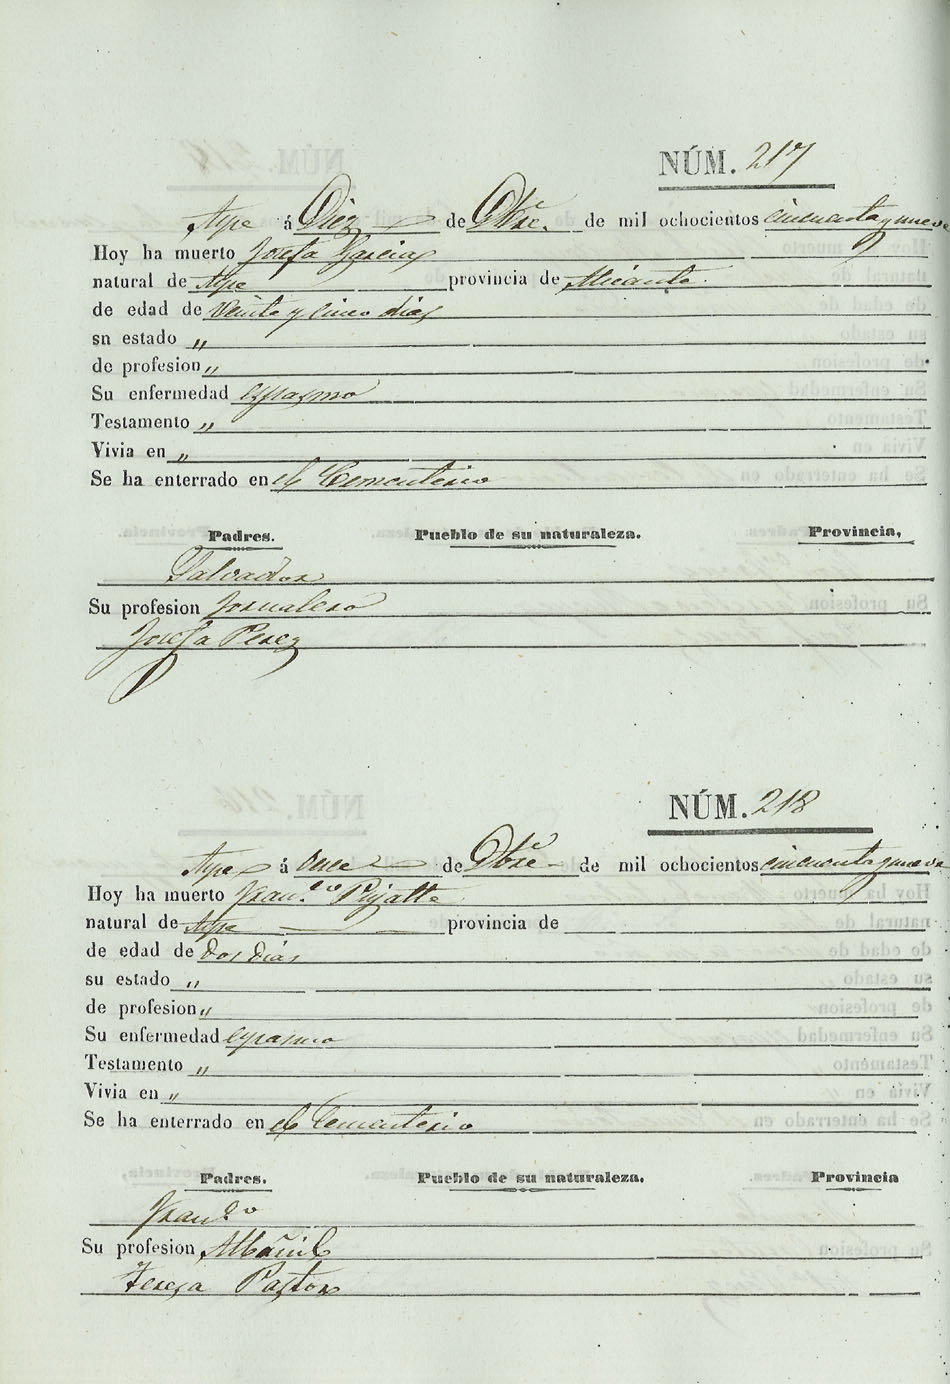 NÚM. 217
Aspe á Diez de Dbre. de mil ochocientos cincuenta y nueve
Hoy ha muerto Josefa Garcia
natural de Aspe provincia de Alicante.
de edad de veinte y cinco dias
sn estado „
de profesion „
Su enfermedad espasmo
Testamento „
Vivia en „
Se ha enterrado en el Cementerio
Padres. Pueblo de su naturaleza. Provincia,
Salvador
Su profesion Jornalero
Josefa Perez
NÚM. 218
Aspe á once de Dbre de mil ochocientos cincuenta y nueve
Hoy ha muerto Franco.
natural de Aspe provincia de
de edad de dos dias
su estado „
de profesion „
Su enfermedad espasmo
Testamento „
Vivia en „
Se ha enterrado en el Cementerio
Padres. Pueblo de su naturaleza. Provincia
Franco
Su profesion Albañil
Teresa Pastor